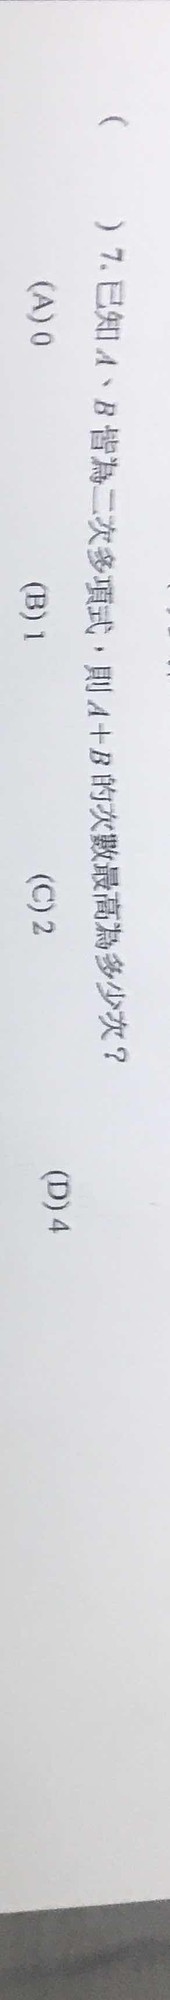 (　　) 7. 已知 A、B 皆為二次多項式，則 A＋B 的次數最高為多少次？
(A) 0　(B) 1　(C) 2　(D) 4